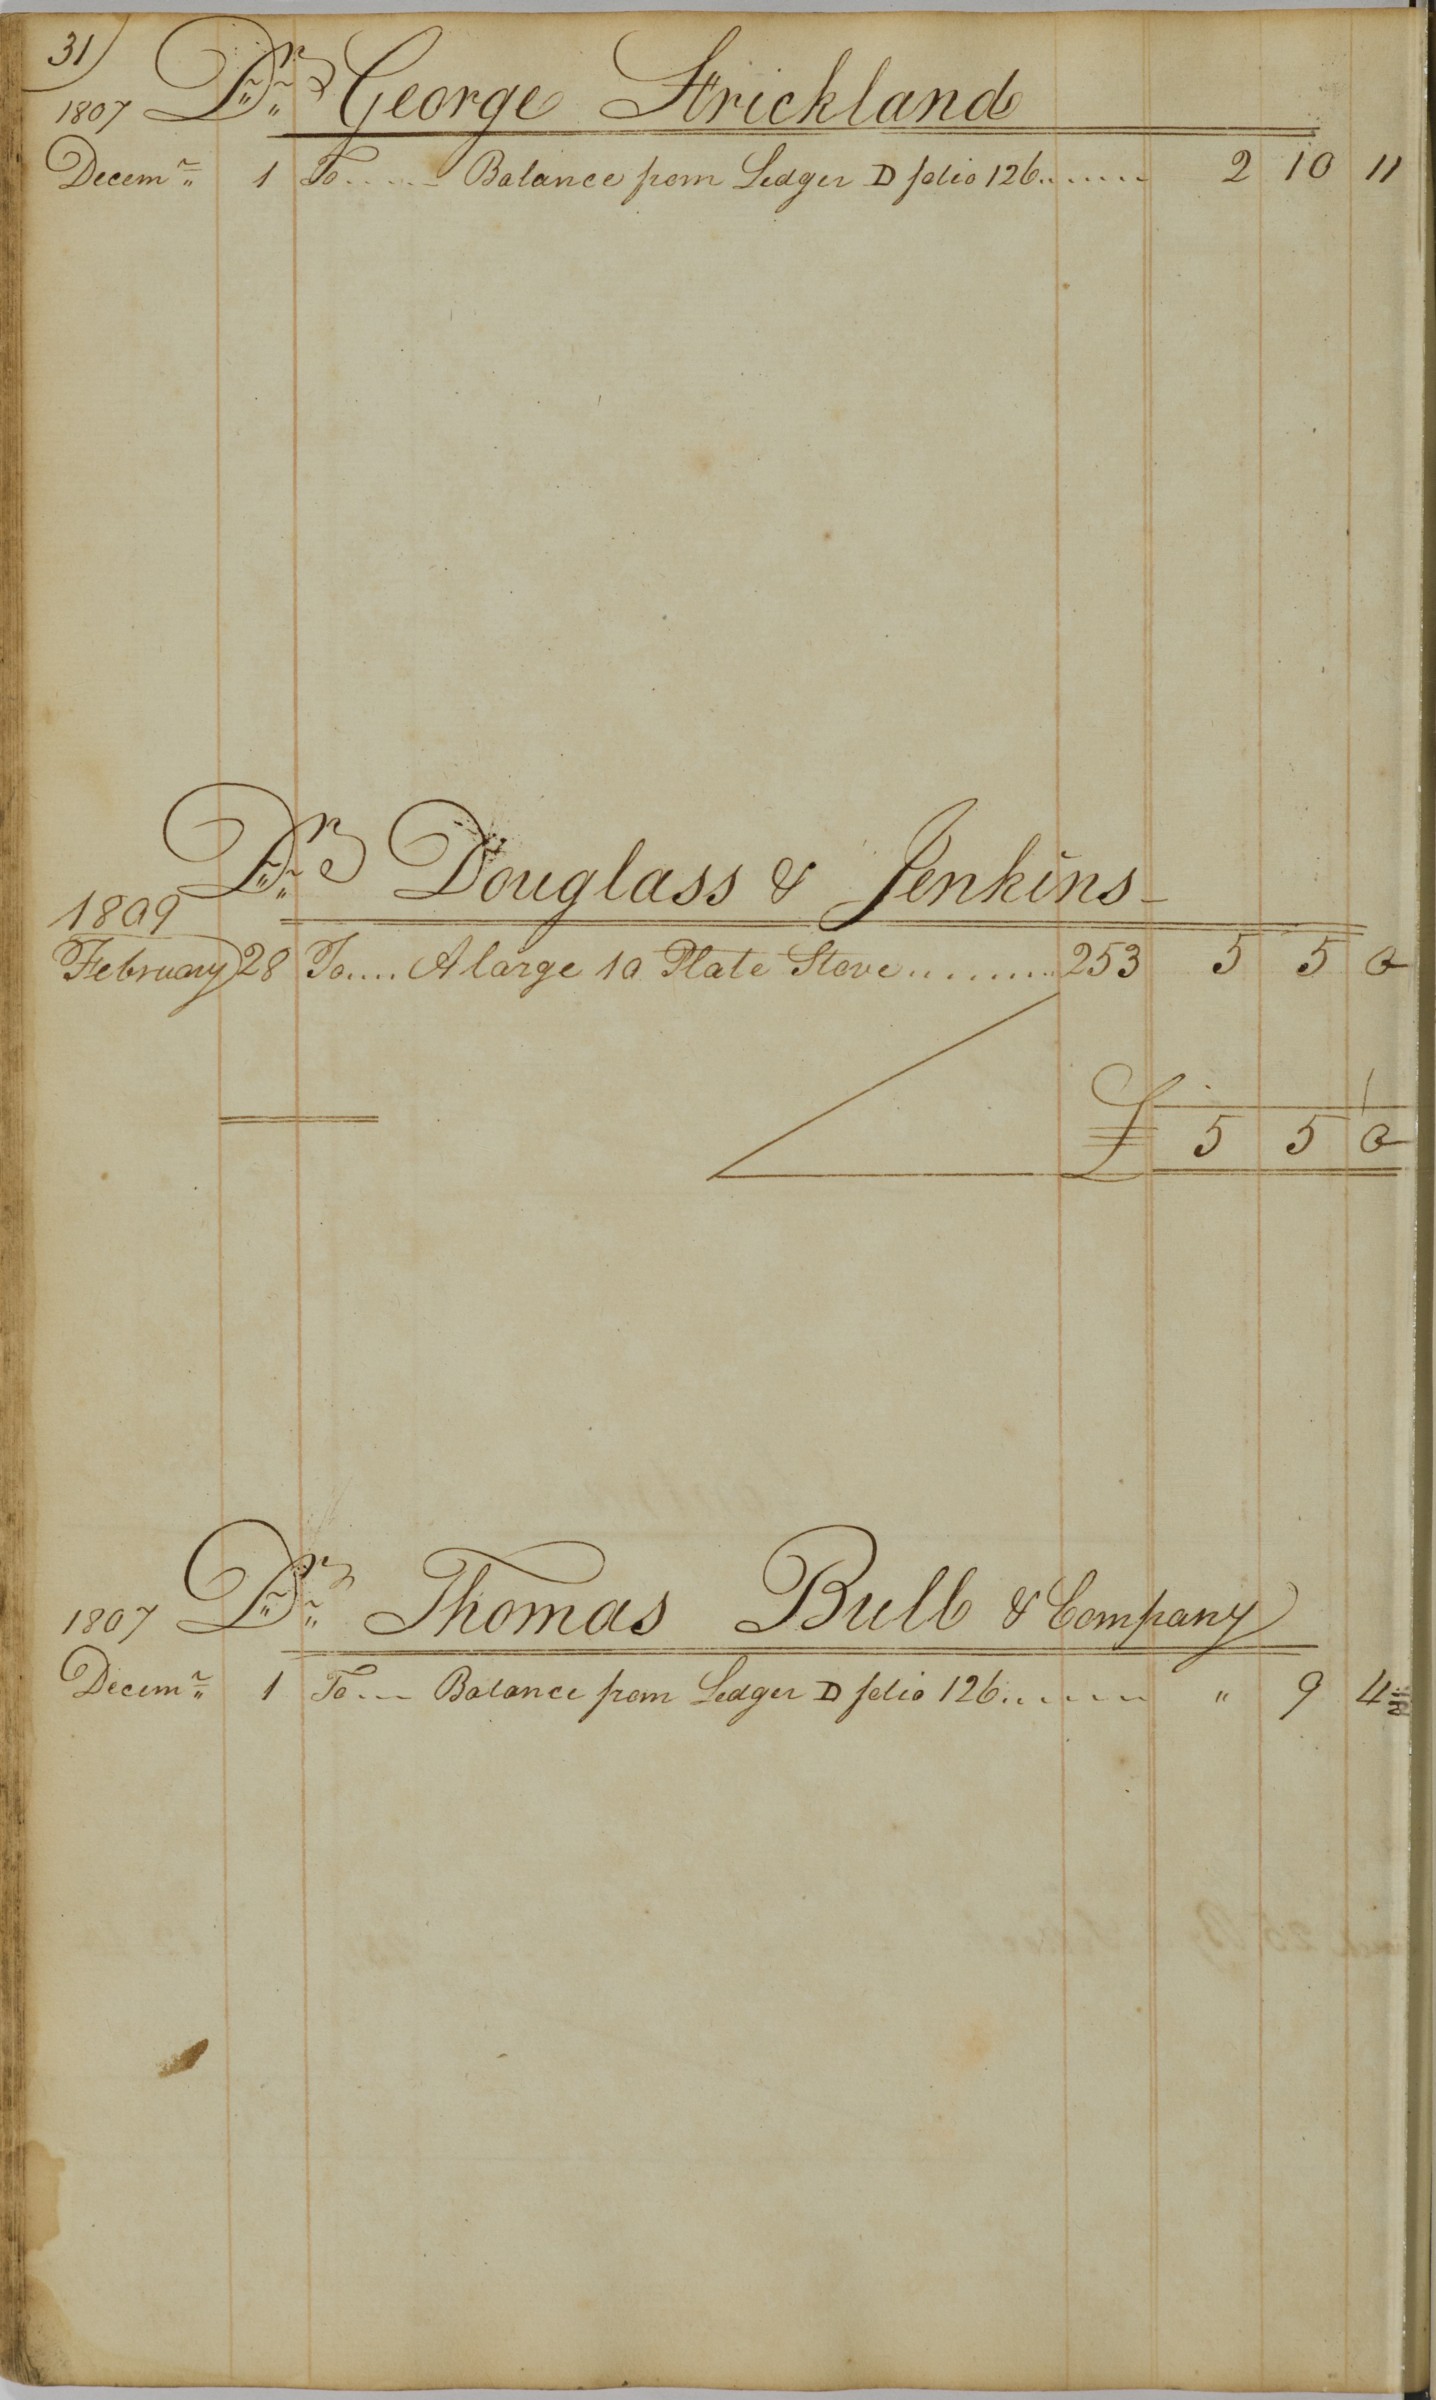 31
1807 Dr George Strickland
Decemr 1 To ..... Balance from Ledger D folio 126 ....... 2 10 11
Dr Douglass & Jenkins
1809
February 28 To .... A large 10 Plate Stove ......... 253 5 5 0
£ 5 5 0
1807 Dr Thomas Bull & Company
Decemr 1 To .... Balance from Ledger D folio 126 ....... " 9 4